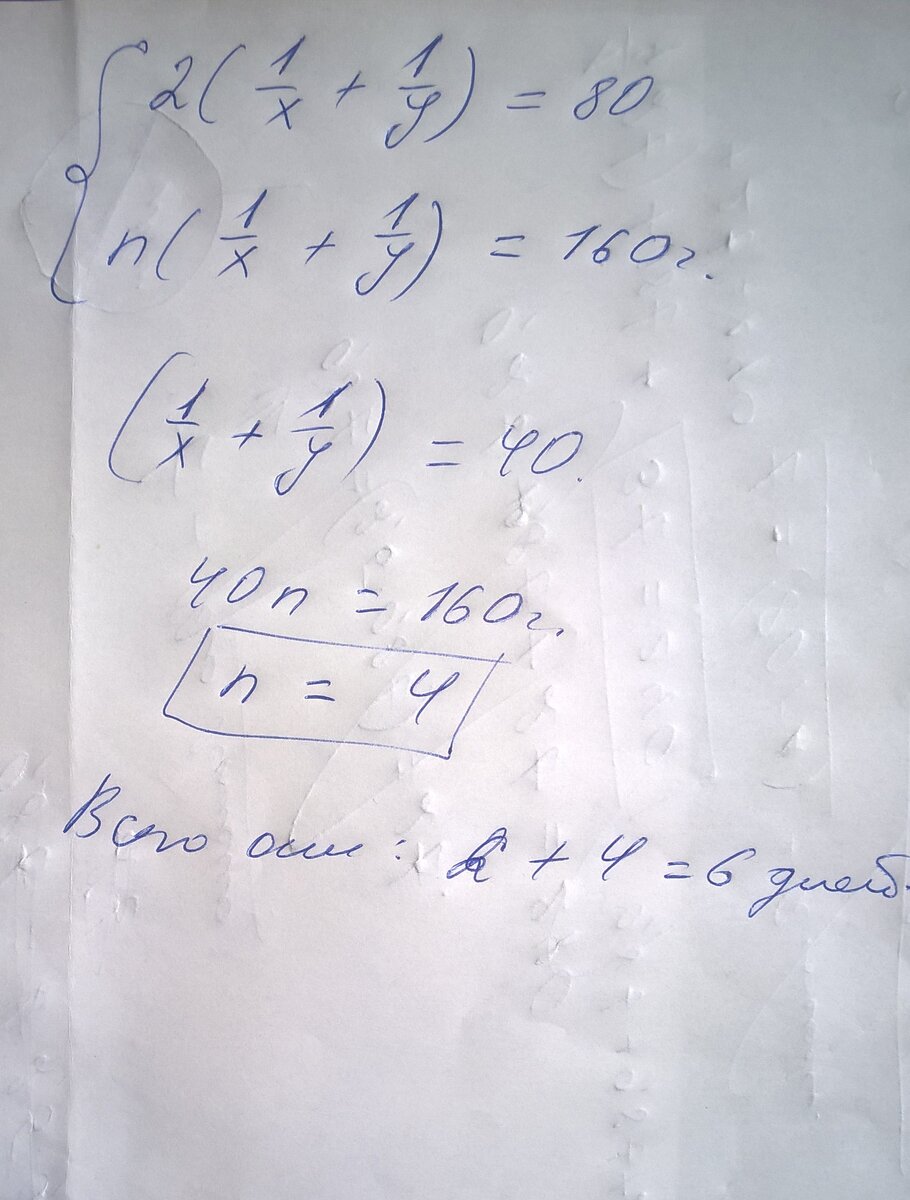 2(1/x + 1/y) = 80
n(1/x + 1/y) = 160г.
(1/x + 1/y) = 40.
40n = 160г.
n = 4
Всего : 2 + 4 = 6 дней.